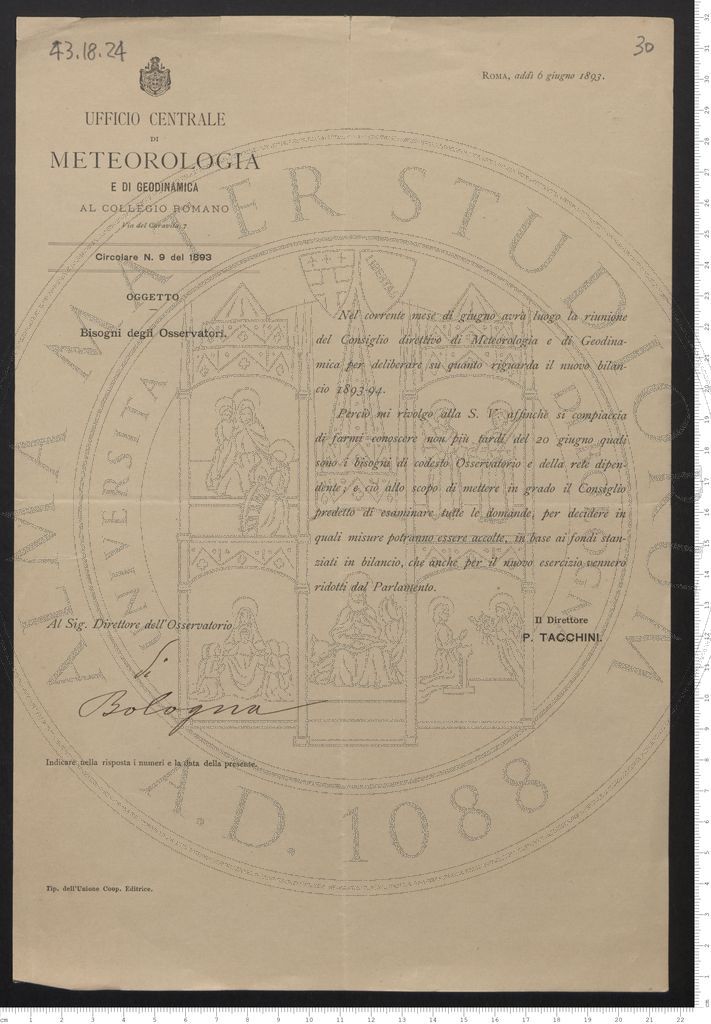 43.18.24
30
ROMA, addì 6 giugno 1893.
UFFICIO CENTRALE
DI
METEOROLOGIA
E DI GEODINAMICA
AL COLLEGIO ROMANO
Via del Caravita, 7
Circolare N. 9 del 1893
OGGETTO
Bisogni degli Osservatori.
Nel corrente mese di giugno avrà luogo la riunione
del Consiglio direttivo di Meteorologia e di Geodina-
mica per deliberare su quanto riguarda il nuovo bilan-
cio 1893-94.
Perciò mi rivolgo alla S. V. affinchè si compiaccia
di farmi conoscere non più tardi del 20 giugno quali
sono i bisogni di codesto Osservatorio e della rete dipen-
dente; e ciò allo scopo di mettere in grado il Consiglio
predetto di esaminare tutte le domande, per decidere in
quali misure potranno essere accolte, in base ai fondi stan-
ziati in bilancio, che anche per il nuovo esercizio vennero
ridotti dal Parlamento.
Il Direttore
P. TACCHINI.
Al Sig. Direttore dell'Osservatorio
di
Bologna
Indicare nella risposta i numeri e la data della presente.
Tip. dell'Unione Coop. Editrice.
ALMA MATER STUDIORUM
A.D. 1088
UNIVERSITA
DI BOLOGNA
LIBERTAS